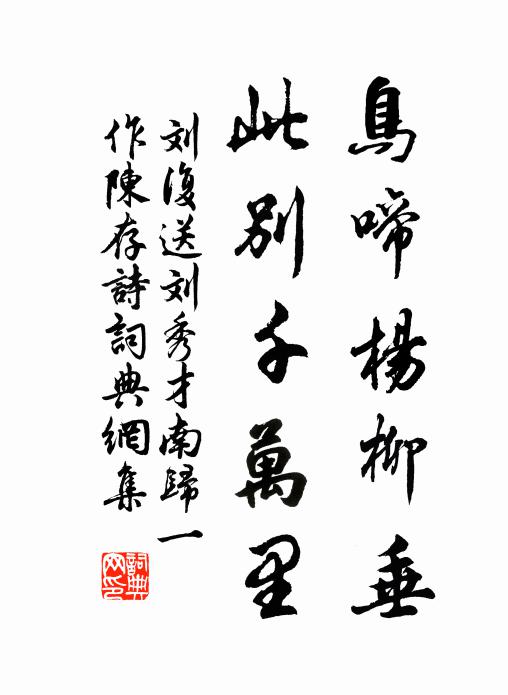 鳥啼楊柳垂
此別千萬里
刘復送刘秀才南歸一
作陳存詩詞典網集
詞典網印